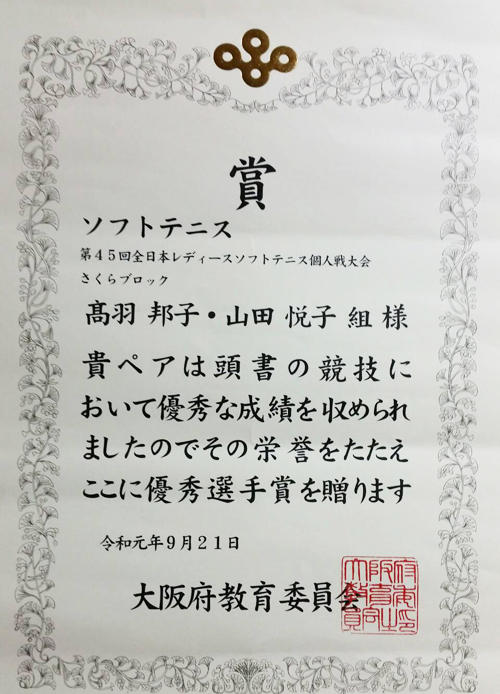 賞
ソフトテニス
第45回全日本レディースソフトテニス個人戦大会
さくらブロック
髙羽 邦子・山田 悦子 組 様
貴ペアは頭書の競技に
おいて優秀な成績を収められ
ましたのでその栄誉をたたえ
ここに優秀選手賞を贈ります
令和元年9月21日
大阪府教育委員会